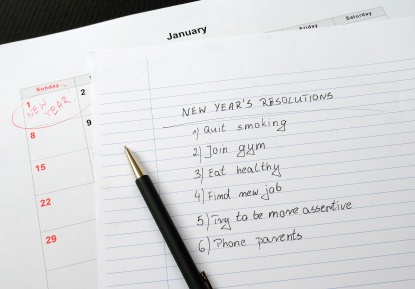 January
Sunday
Friday
Saturday
1
2
NEW
YEAR
8
9
15
22
29
NEW YEAR'S RESOLUTIONS
1) Quit smoking
2) Join gym
3) Eat healthy
4) Find new job
5) Try to be more assertive
6) Phone parents